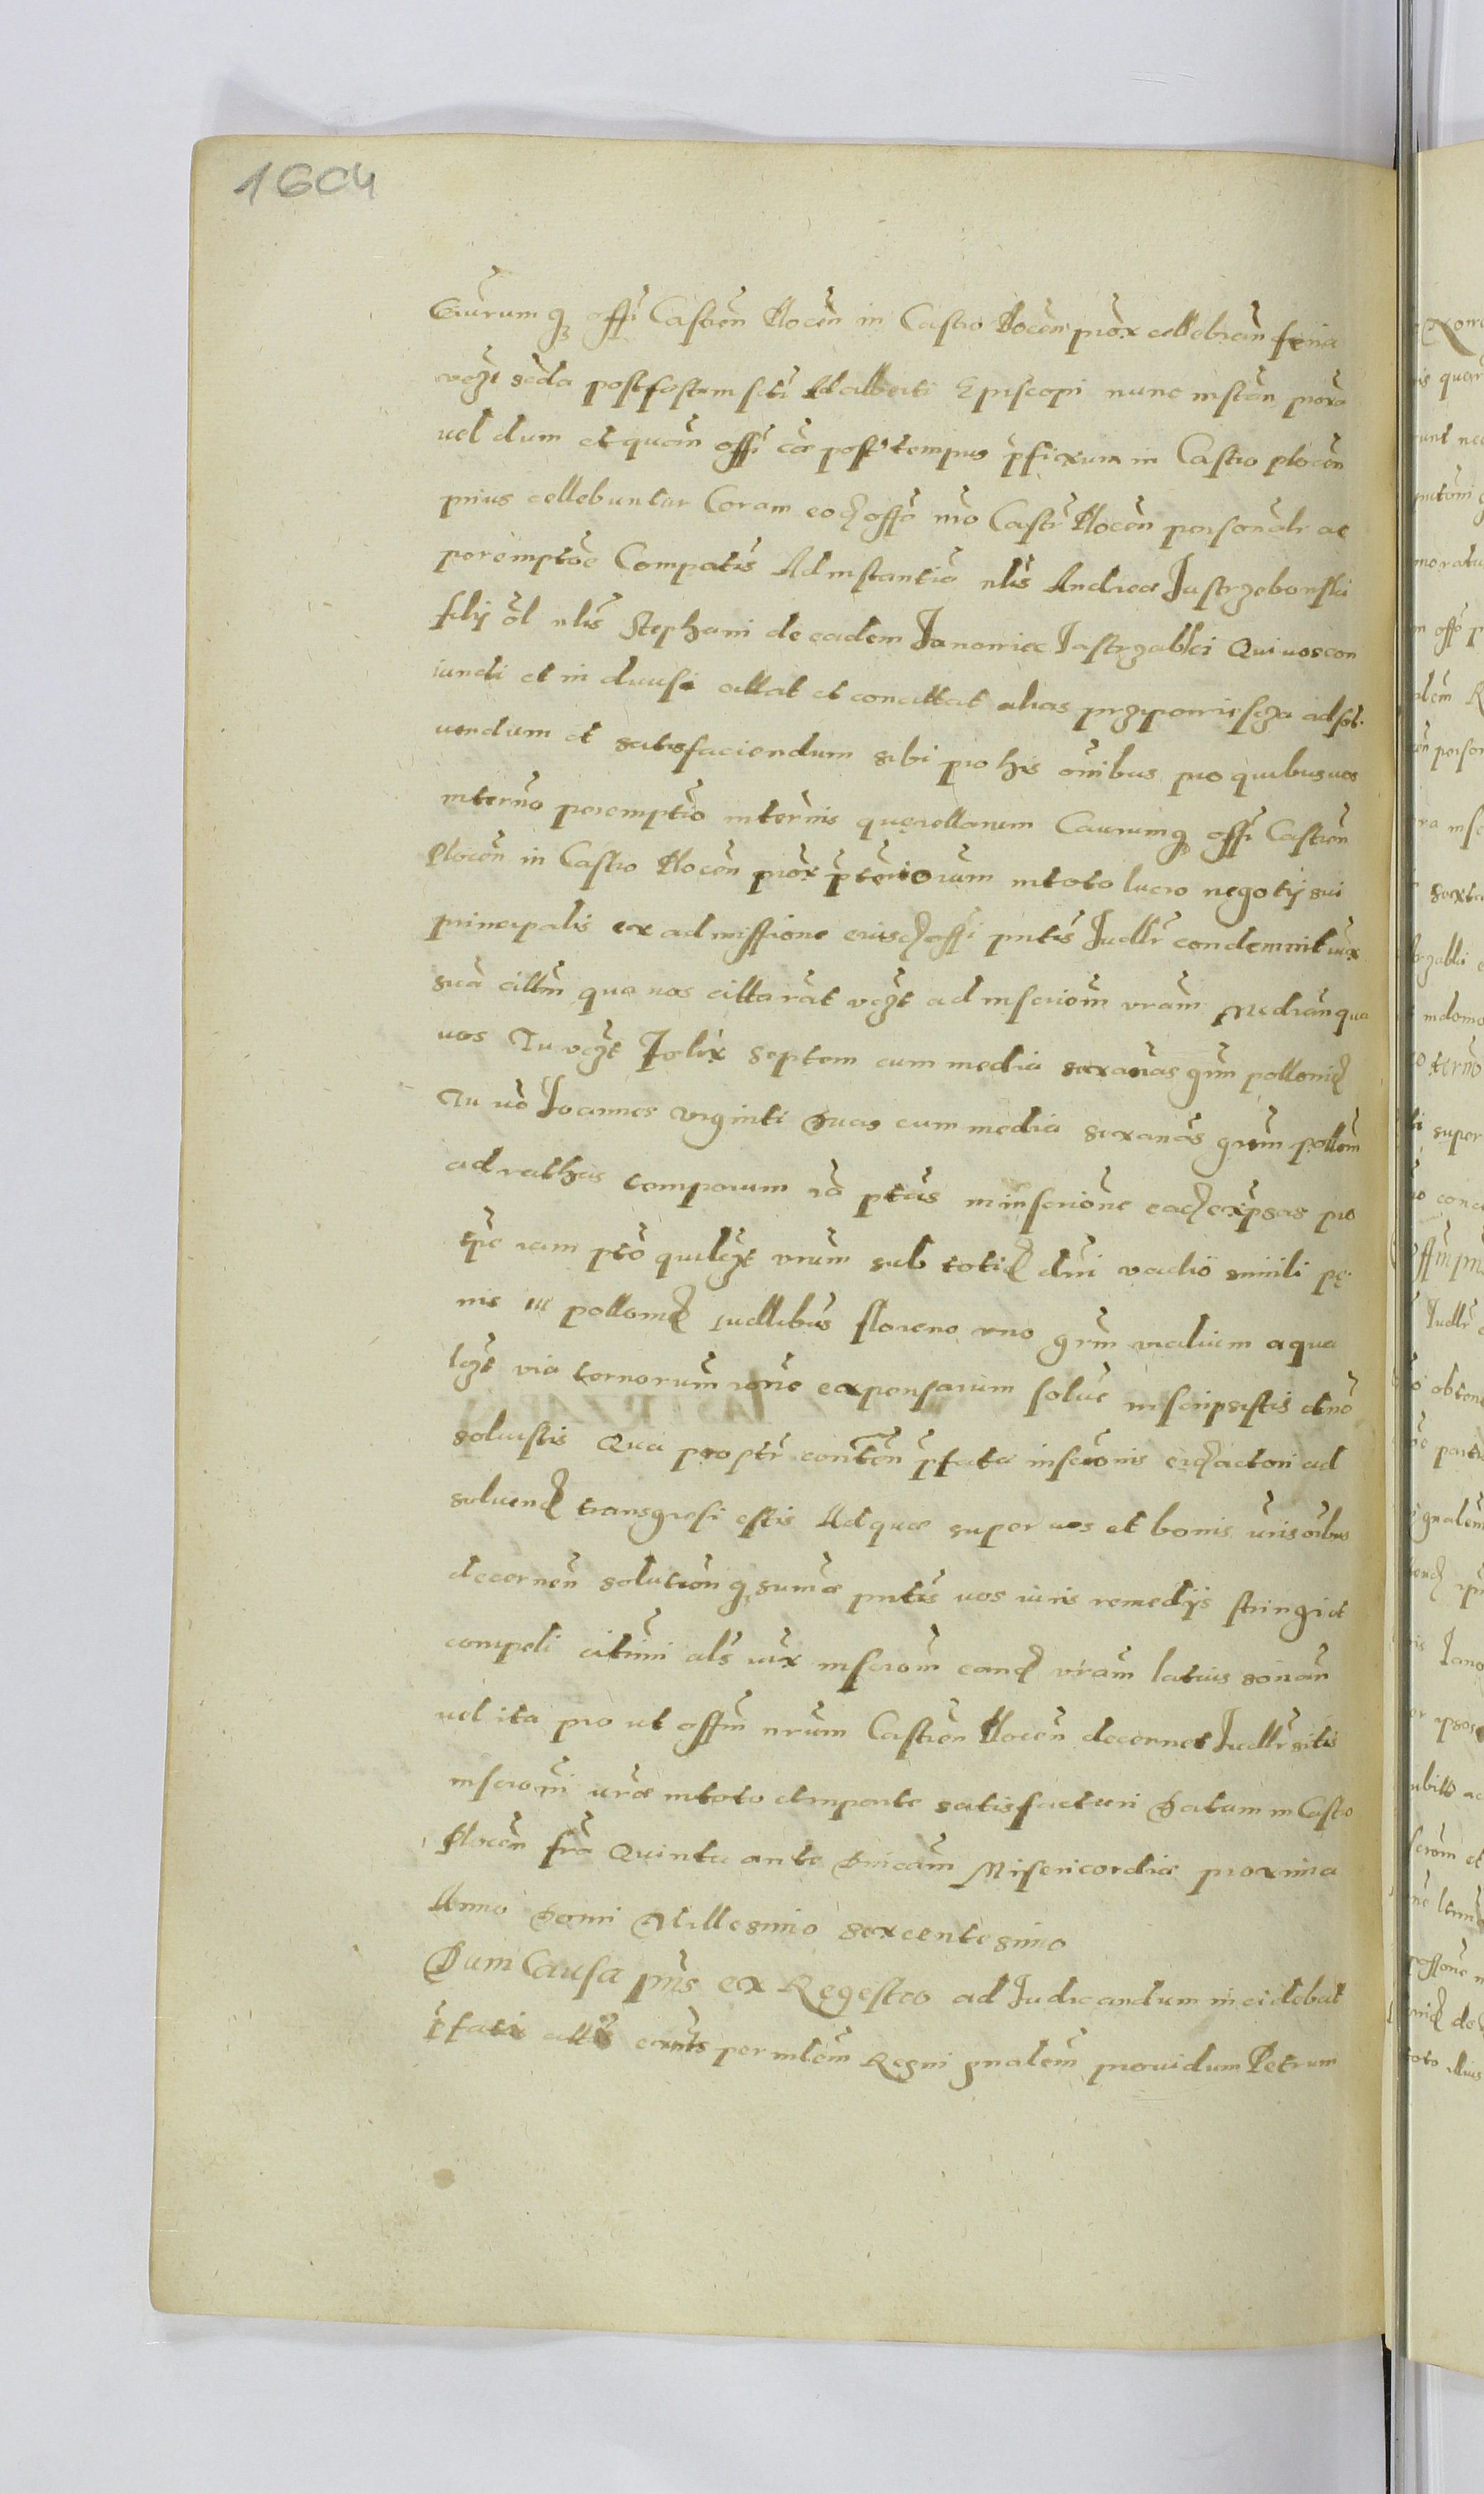 1604
Caurumq offi Castren Plocen in Castro Plocen prox cellebran feria
vegt scda post festum scti Adalberti Episcopi nunc instan prox
vel dum et quan offi cae post tempus pfixum in Castro plocen
prius cellebuntur Coram eod offo nro Castr Plocen personalr ac
peremptoe Compatis Ad instantia nlis Andreae Jastrzebowski
filÿ ol nlis Stephani de eadem Janowiec Jastrzabki Qui vos con
iuncti et in diuisi cittat et concittat alias przypowiescza ad sol
uendum et satisfaciendum sibi pro his omibus pro quibus vos
in terno peremptio in ternis querellarum Caurumq offi Castren
Plocen in Castro Plocen prox pteriorum in toto lucro negotÿ sui
principalis ex admissione eiusd offi pntis Judlr condemnit iux
sua cittn qua vos cittarat vegt ad inscriom vram median qua
vos Tu vegt Felix septem cum media sexanas grm pollonid
Tu vo Joannes viginti duas cum media sexanas grum pollon
ad rathas temporum ia ptas in inscrione ead expsas pro
tpe iam pto quilegt vrum sub totid dni vadio simili pe
nis in pollonid iudlibus floreno vno grm vialium a qua
legt via ternorum rone expensarum solue inscripsistis et no
soluistis Qua proptr conten pfata inscronis eid actori ad
soluend transgresi estis Ad quae super vos et bonis vris oibus
decernen solution q sumae pntis vos iuris remedÿs stringi et
compeli citimi als iux inscrom eand vram latius sonan
vel ita pro ut offm nrum Castren Plocen decernet Judlr sitis
inscrioni vrae in toto et in parte satisfacturi Datum in Castro
Plocen fra Quinta ante Dnicam Misericordiae proxima
Anno Domi Millesimo sexcentesimo
Dum Causa pns ex Regestro ad Judicandum incidebat
pfatis per mlem Regni gnalem prouidum Petrum